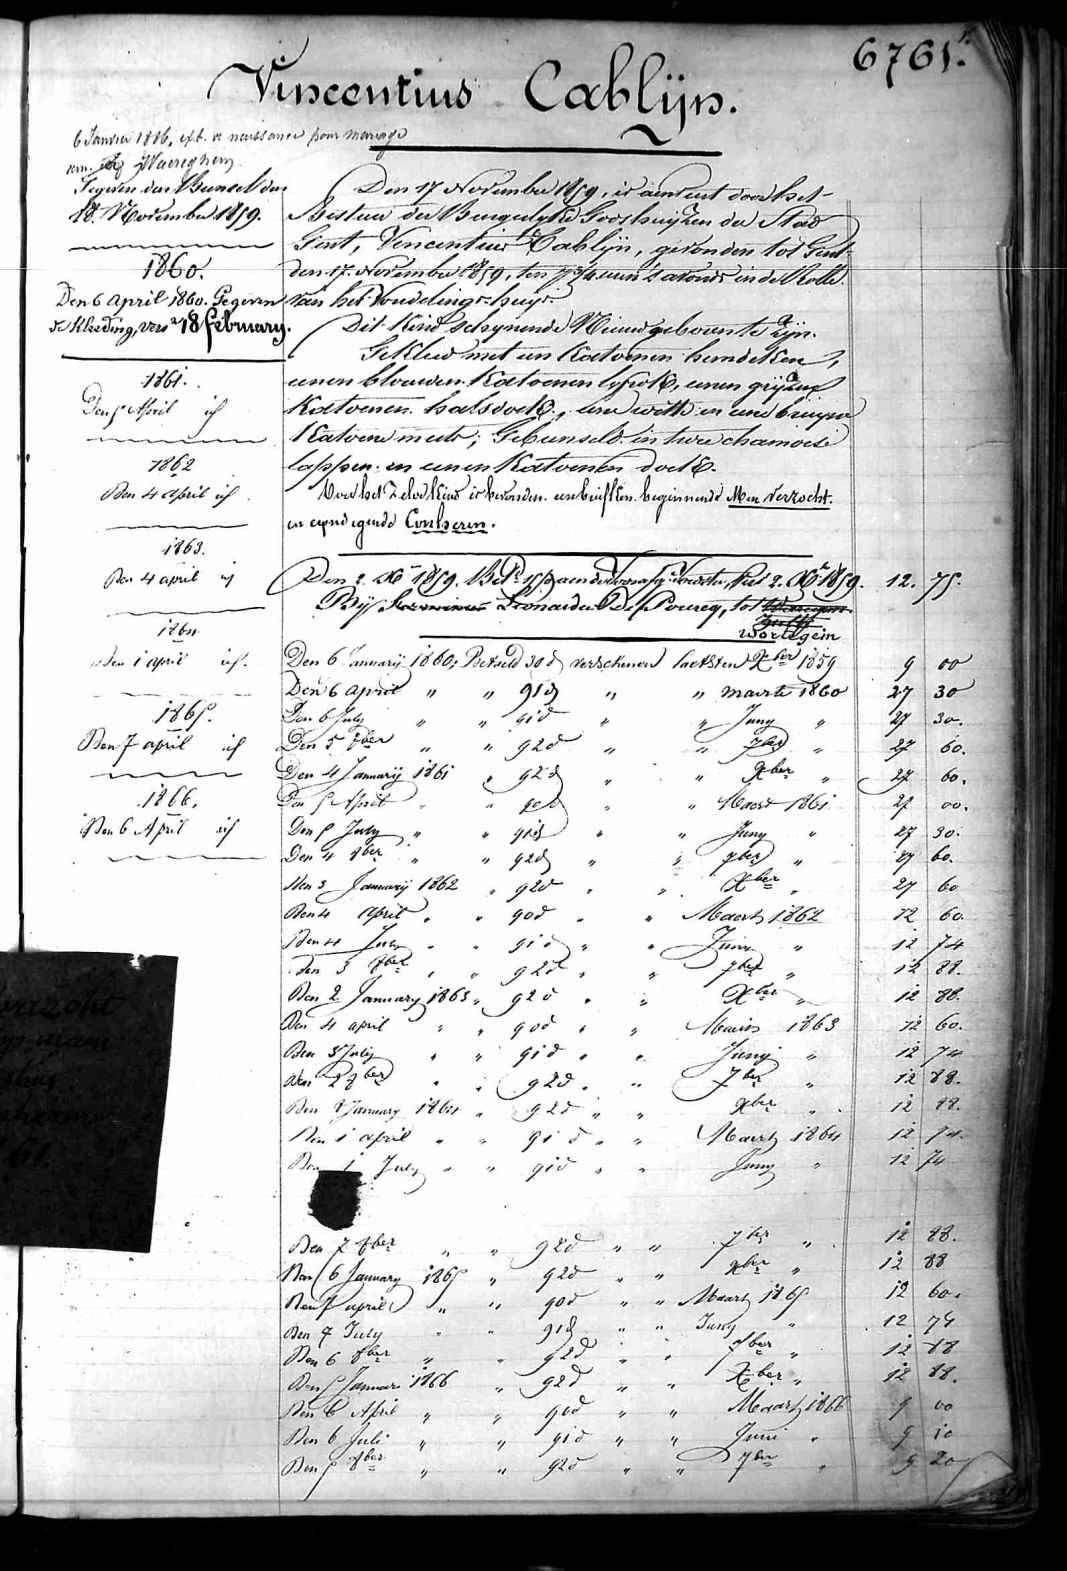 6761.
Vincentius Cablijn.
6 Janvier 1886, ext. de naissance pour mariage
Waereghem
Gegeven den Bunsel den
18 November 1859.
1860.
Den 6 April 1860. Gegeven
de Kleeding, vers 18 february.
1861.
Den 5 April id
1862
Den 4 april id
1863.
Den 4 april id
1864
Den 1 april id.
1865.
Den 7 april id
1866.
Den 6 April id
Den 17 November 1859, is aenveert door het
Bestuer der Burgerlyke Godshuyzen der Stad
Gent, Vincentius Cablijn, gevonden tot Gent
den 17 November 1859, ten 7 3/4 uren 's avonds in de Rolle
van het Vondelings-huys.
Dit Kind schynende Nieuwgeboren te zyn.
Gekleed met een Katoenen hemdeken,
eenen blauwen Katoenen lyfrok, eenen gryzen
Katoenen halsdoek, eene witte en eene bruyne
Katoene muts; Gebunseld in twee chamoise
lappen en eenen Katoenen doek.
Voor het Zelve Kind is bevonden een briefken beginnende Men verzocht.
en eyndigende Conheren.
Den 2. Xber 1859. Bet. 2 Xber 1859. 12. 75.
By Leonardus De Poureq, tot
Wortegem
Den 6 January 1860, Betaeld 30 d verschenen laetsten Xber 1859 9 00
Den 6 April " " 91 d " " maerte 1860 27 30
Den 6 July " " 91 d " " Juny " 27 30.
Den 5 8ber " " 92 d " " 7ber " 27 60.
Den 4 January 1861 " 92 d " " Xber " 27 60.
Den 5 April " " 90 d " " Maert 1861 27 00.
Den 5 July " " 91 d " " Juny " 27 30.
Den 4 8ber " " 92 d " " 7ber " 27 60.
Den 3 January 1862 " 92 d " " Xber " 27 60
Den 4 april " " 90 d " " Maert 1862 12 60
Den 4 July " " 91 d " " Juny " 12 74
Den 3 8ber " " 92 d " " 7ber " 12 88.
Den 2 January 1863 " 92 d " " Xber " 12 88.
Den 4 april " " 90 d " " Maert 1863 12 60.
Den 3 July " " 91 d " " Juny " 12 74
Den 2 8ber " " 92 d " " 7ber " 12 88.
Den 8 January 1864 " 92 d " " Xber " 12 88.
Den 1 april " " 91 d " " Maert 1864 12 74.
Den 1 July " " 91 d " " Juny " 12 74
Den 7 8ber " " 92 d " " 7ber " 12 88.
Den 6 January 1865 " 92 d " " Xber " 12 88
Den 7 april " " 90 d " " Maert 1865 12 60.
Den 7 July " " 91 d " " Juny " 12 74
Den 6 8ber " " 92 d " " 7ber " 12 88
Den 5 Januari 1866 " 92 d " " Xber " 12 88.
Den 6 April " " 90 d " " Maart 1866 9 00
Den 6 Juli " " 91 d " " Juni " 9 10
Den 5 8ber " " 92 d " " 7ber " 9 20